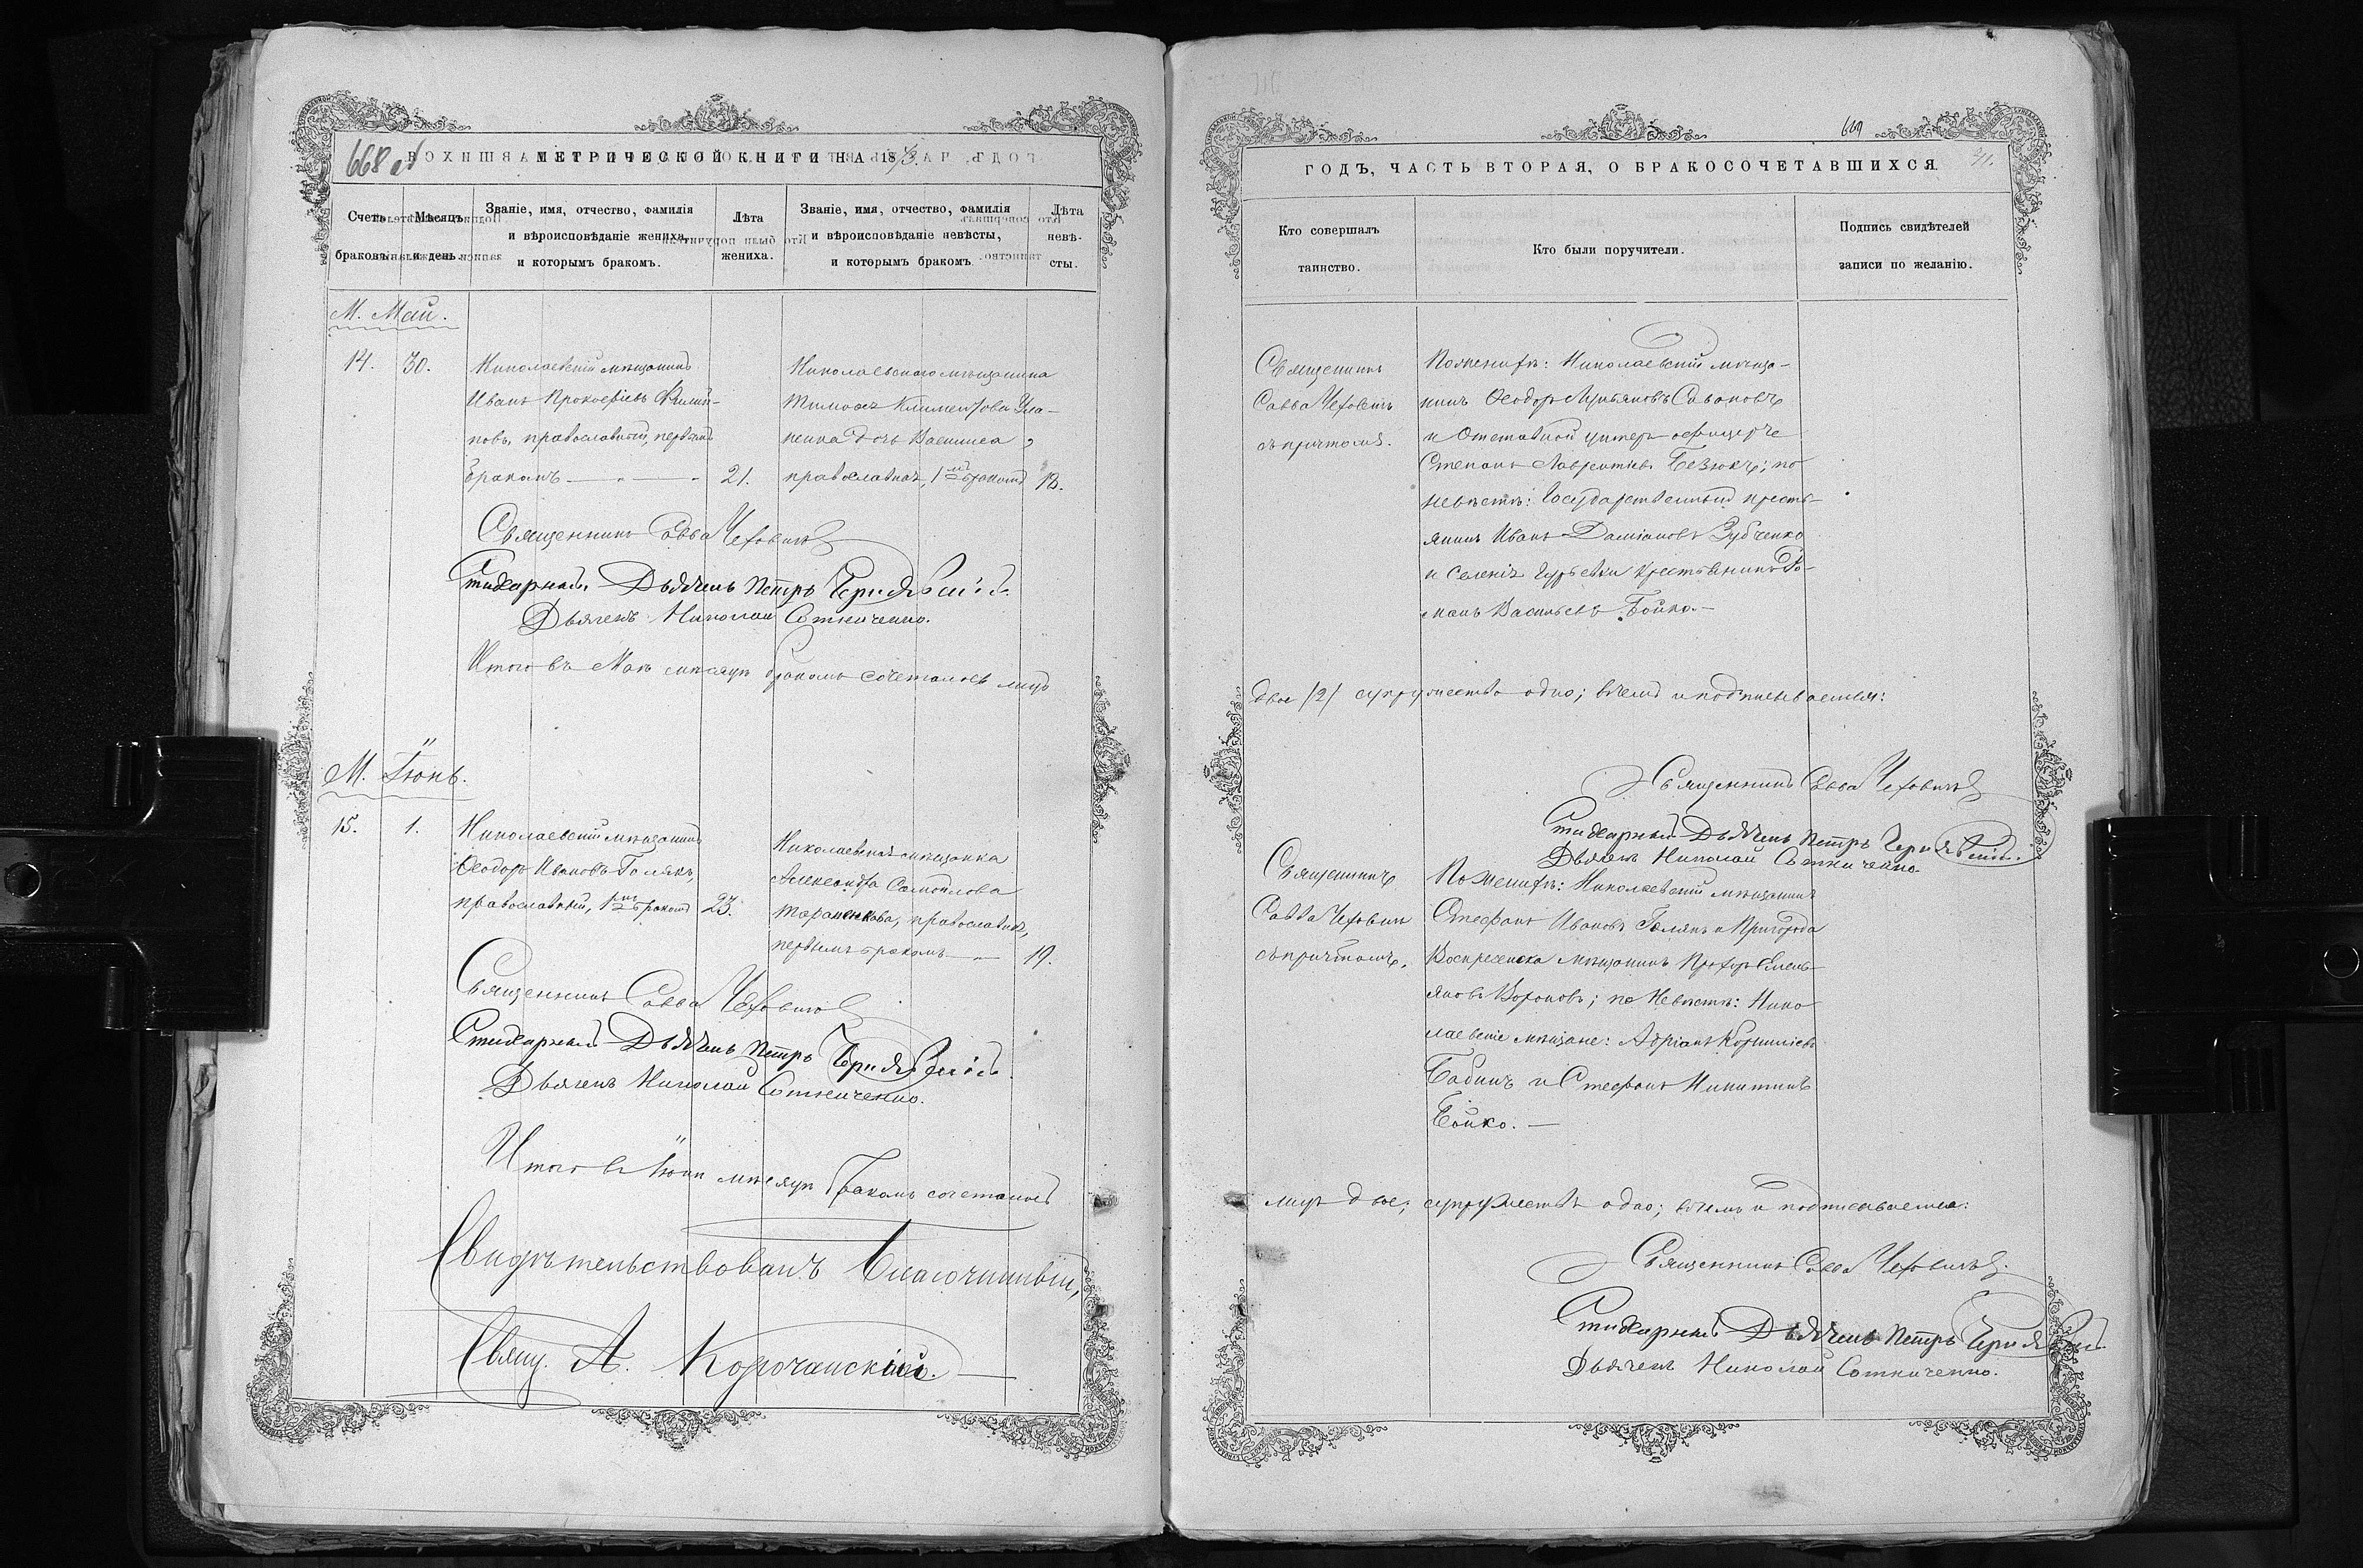 668 об
МЕТРИЧЕСКОЙ КНИГИ НА 1873.
Счетъ браковъ.
Мѣсяцъ и день.
Званіе, имя, отчество, фамилія
и вѣроисповѣданіе жениха,
и которымъ бракомъ.
Лѣта
жениха.
Званіе, имя, отчество, фамилія
и вѣроисповѣданіе невѣсты,
и которымъ бракомъ.
Лѣта
невѣ-
сты.
М. Май.
14. 30.
Николаевскій мѣщанинъ
Иванъ Прокофіевъ Филип-
повъ, православный, первымъ
бракомъ — 21.
Николаевскаго мѣщанина
Климентова
дочь Василиса,
православная, 1мъ бракомъ 18.
Священникъ Савва Чехович
Стихарный Дьячекъ Петръ Чернявскій.
Дьячекъ Николай Сотниченко.
Итого въ Маѣ мѣсяцѣ бракомъ сочеталось лицъ
М. Іюнь.
15. 1.
Николаевскій мѣщанинъ
Ѳеодоръ Ивановъ Голякъ,
православный, 1мъ бракомъ 23.
Николаевская мѣщанка
Александра Самойлова
Тараненкова, православная,
первымъ бракомъ — 19.
Священникъ Савва Чехович
Стихарный Дьячекъ Петръ Чернявскій.
Дьячекъ Николай Сотниченко.
Итого въ Іюнѣ мѣсяцѣ бракомъ сочеталось
Свидѣтельствовалъ Благочинный,
Свящ. А. Корочанскій.
669
41.
ГОДЪ, ЧАСТЬ ВТОРАЯ, О БРАКОСОЧЕТАВШИХСЯ.
Кто совершалъ
таинство.
Кто были поручители.
Подпись свидѣтелей
записи по желанію.
Священникъ
Савва Чеховичъ
съ причтомъ.
По женихѣ: Николаевскій мѣща-
нинъ Ѳеодоръ Савоновъ
и Отставной унтеръ-офицеръ
Степанъ Лаврентіевъ Безюкъ; по
невѣстѣ: Государственный кресть-
янинъ Иванъ Даміановъ Зубченко
и Селенія Гурьевки крестьянинъ Ро-
манъ Васильевъ Бойко.—
двое /2/ супружество одно; въ чемъ и подписываемся:
Священникъ Савва Чеховичъ
Стихарный Дьячекъ Петръ Чернявскій.
Дьячекъ Николай Сотниченко.
Священникъ
Савва Чеховичъ
съ причтомъ.
По женихѣ: Николаевскій мѣщанинъ
Стефанъ Ивановъ Голякъ и Пригорода
Воскресенска мѣщанинъ Прохоръ Емель-
яновъ Вороновъ; по Невѣстѣ: Нико
лаевскіе мѣщане: Адріанъ Корниліевъ
Бабичъ и Стефанъ Никитинъ
Бойко. —
лицъ двое; супружествъ одно; въ чемъ и подписываемся:
Священникъ Савва Чеховичъ
Стихарный Дьячекъ Петръ Чернявскій
Дьячекъ Николай Сотниченко.